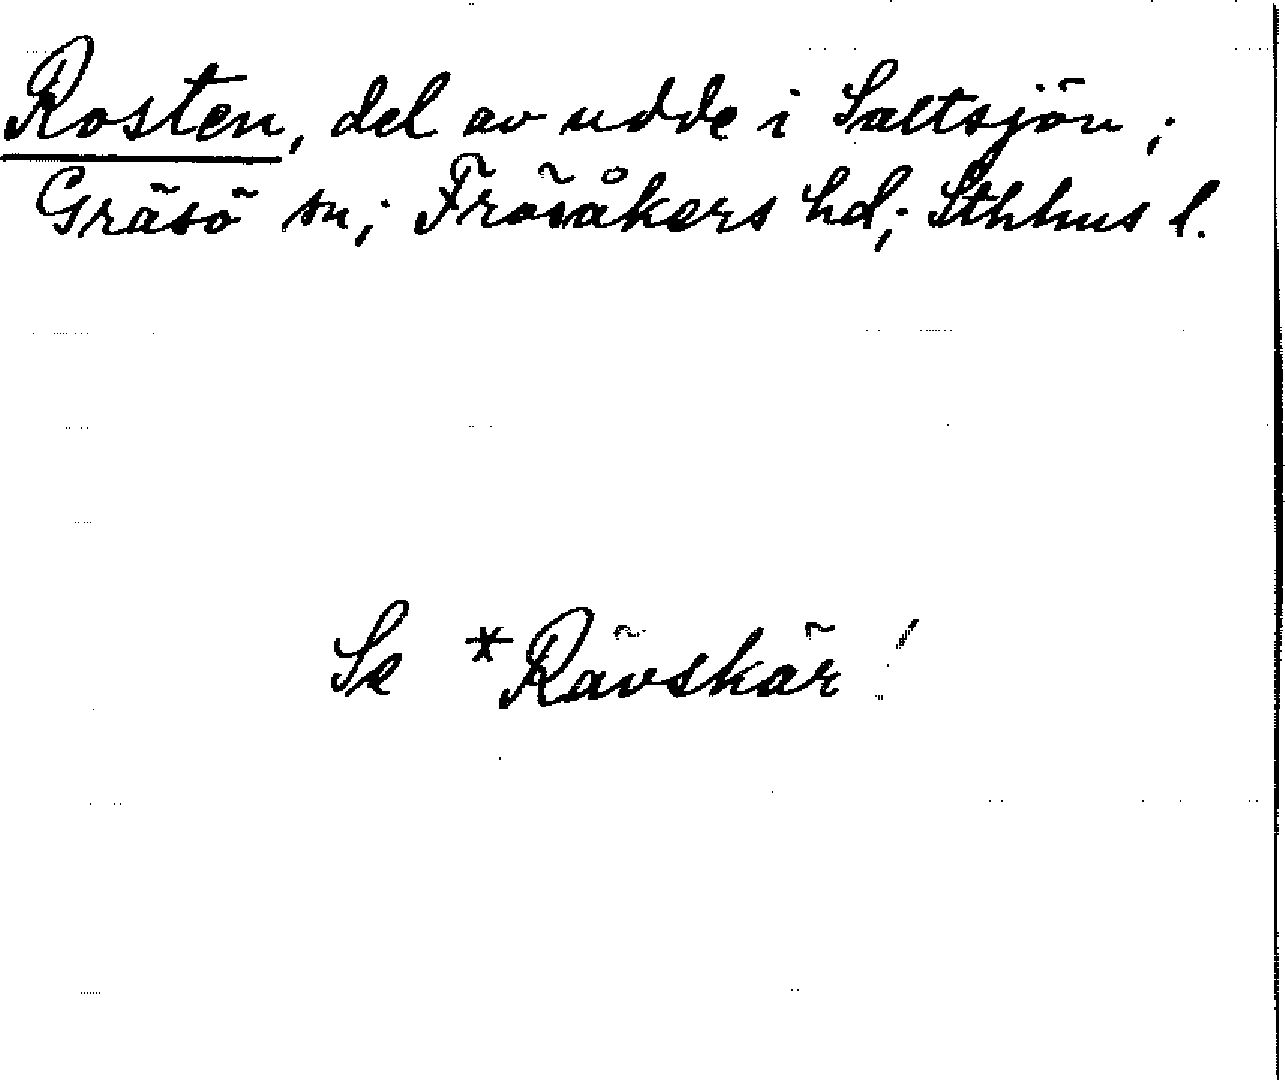 Rosten, del av udde i Saltsjön;
Gräsö sn; Frösåkers hd; Sthhus l.
Se *Rävskär!